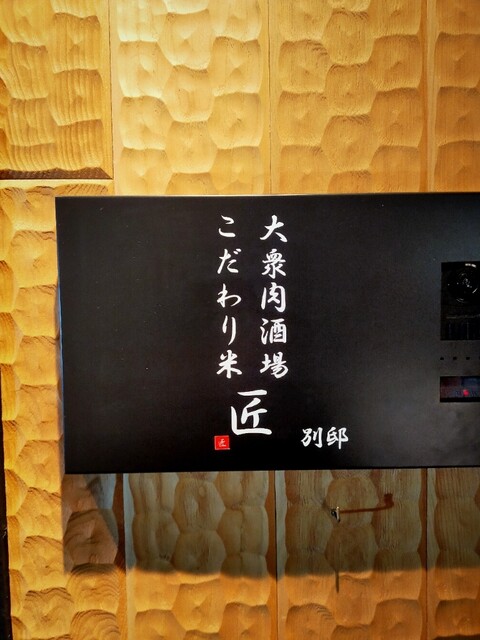 大衆肉酒場
こだわり米
匠
匠
別邸